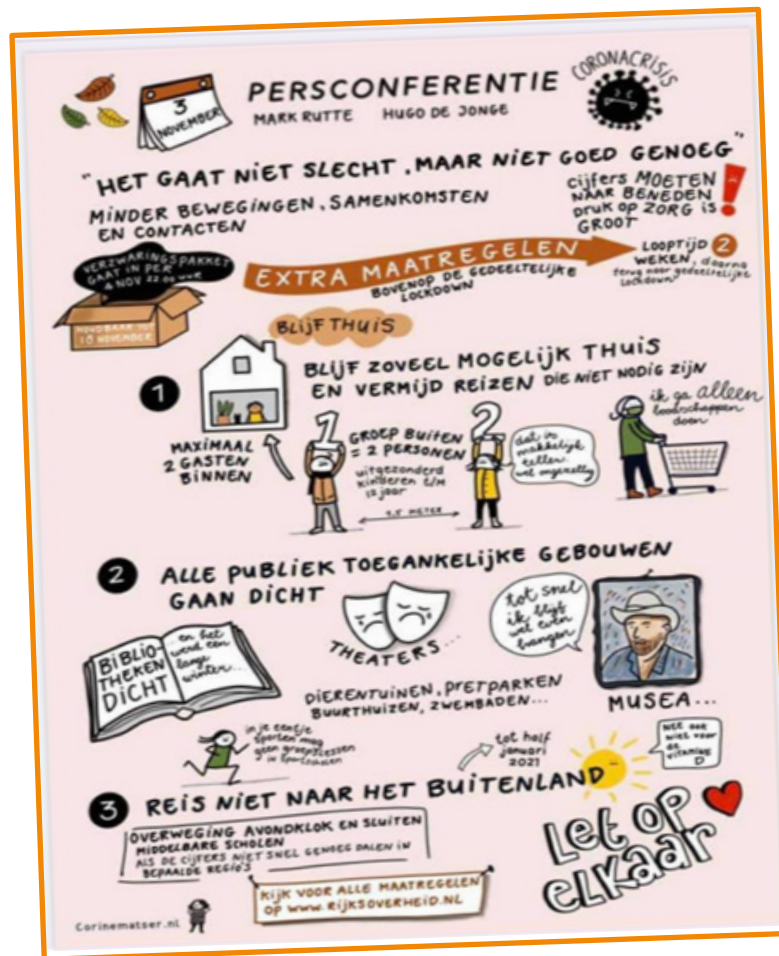 3
NOVEMBER
PERSCONFERENTIE
MARK RUTTE HUGO DE JONGE
CORONACRISIS
"HET GAAT NIET SLECHT, MAAR NIET GOED GENOEG"
MINDER BEWEGINGEN, SAMENKOMSTEN
EN CONTACTEN
cijfers MOETEN
NAAR BENEDEN
DRUK OP ZORG IS
GROOT
!
VERZWARINGSPAKKET
GAAT IN PER
4 NOV 22.00 uur
HOUDBAAR TOT
18 NOVEMBER
EXTRA MAATREGELEN
BOVENOP DE GEDEELTELIJKE
LOCKDOWN
LOOPTIJD 2
WEKEN, daarna
terug naar gedeeltelijke
lockdown
BLIJF THUIS
1
BLIJF ZOVEEL MOGELIJK THUIS
EN VERMIJD REIZEN DIE NIET NODIG ZIJN
MAXIMAAL
2 GASTEN
BINNEN
1
GROEP BUITEN
= 2 PERSONEN
uitgezonderd
kinderen t/m
12 jaar
1,5 METER
2
dat is
makkelijk
tellen
wel ongezellig
ik ga alleen
boodschappen
doen
2
ALLE PUBLIEK TOEGANKELIJKE GEBOUWEN
GAAN DICHT
BIBLIO-
THEKEN
DICHT
...en het
werd een
lange
winter...
THEATERS...
tot snel
ik blijf
wel even
hangen
MUSEA...
DIERENTUINEN, PRETPARKEN
BUURTHUIZEN, ZWEMBADEN...
in je eentje
sporten mag
geen groepslessen
in sportscholen
tot half
januari
2021
NEE OOK
niet voor
de
vitamine
D
3
REIS NIET NAAR HET BUITENLAND
OVERWEGING AVONDKLOK EN SLUITEN
MIDDELBARE SCHOLEN
ALS DE CIJFERS NIET SNEL GENOEG DALEN IN
BEPAALDE REGIO'S
LET OP
ELKAAR
KIJK VOOR ALLE MAATREGELEN
OP WWW.RIJKSOVERHEID.NL
Corinematser.nl